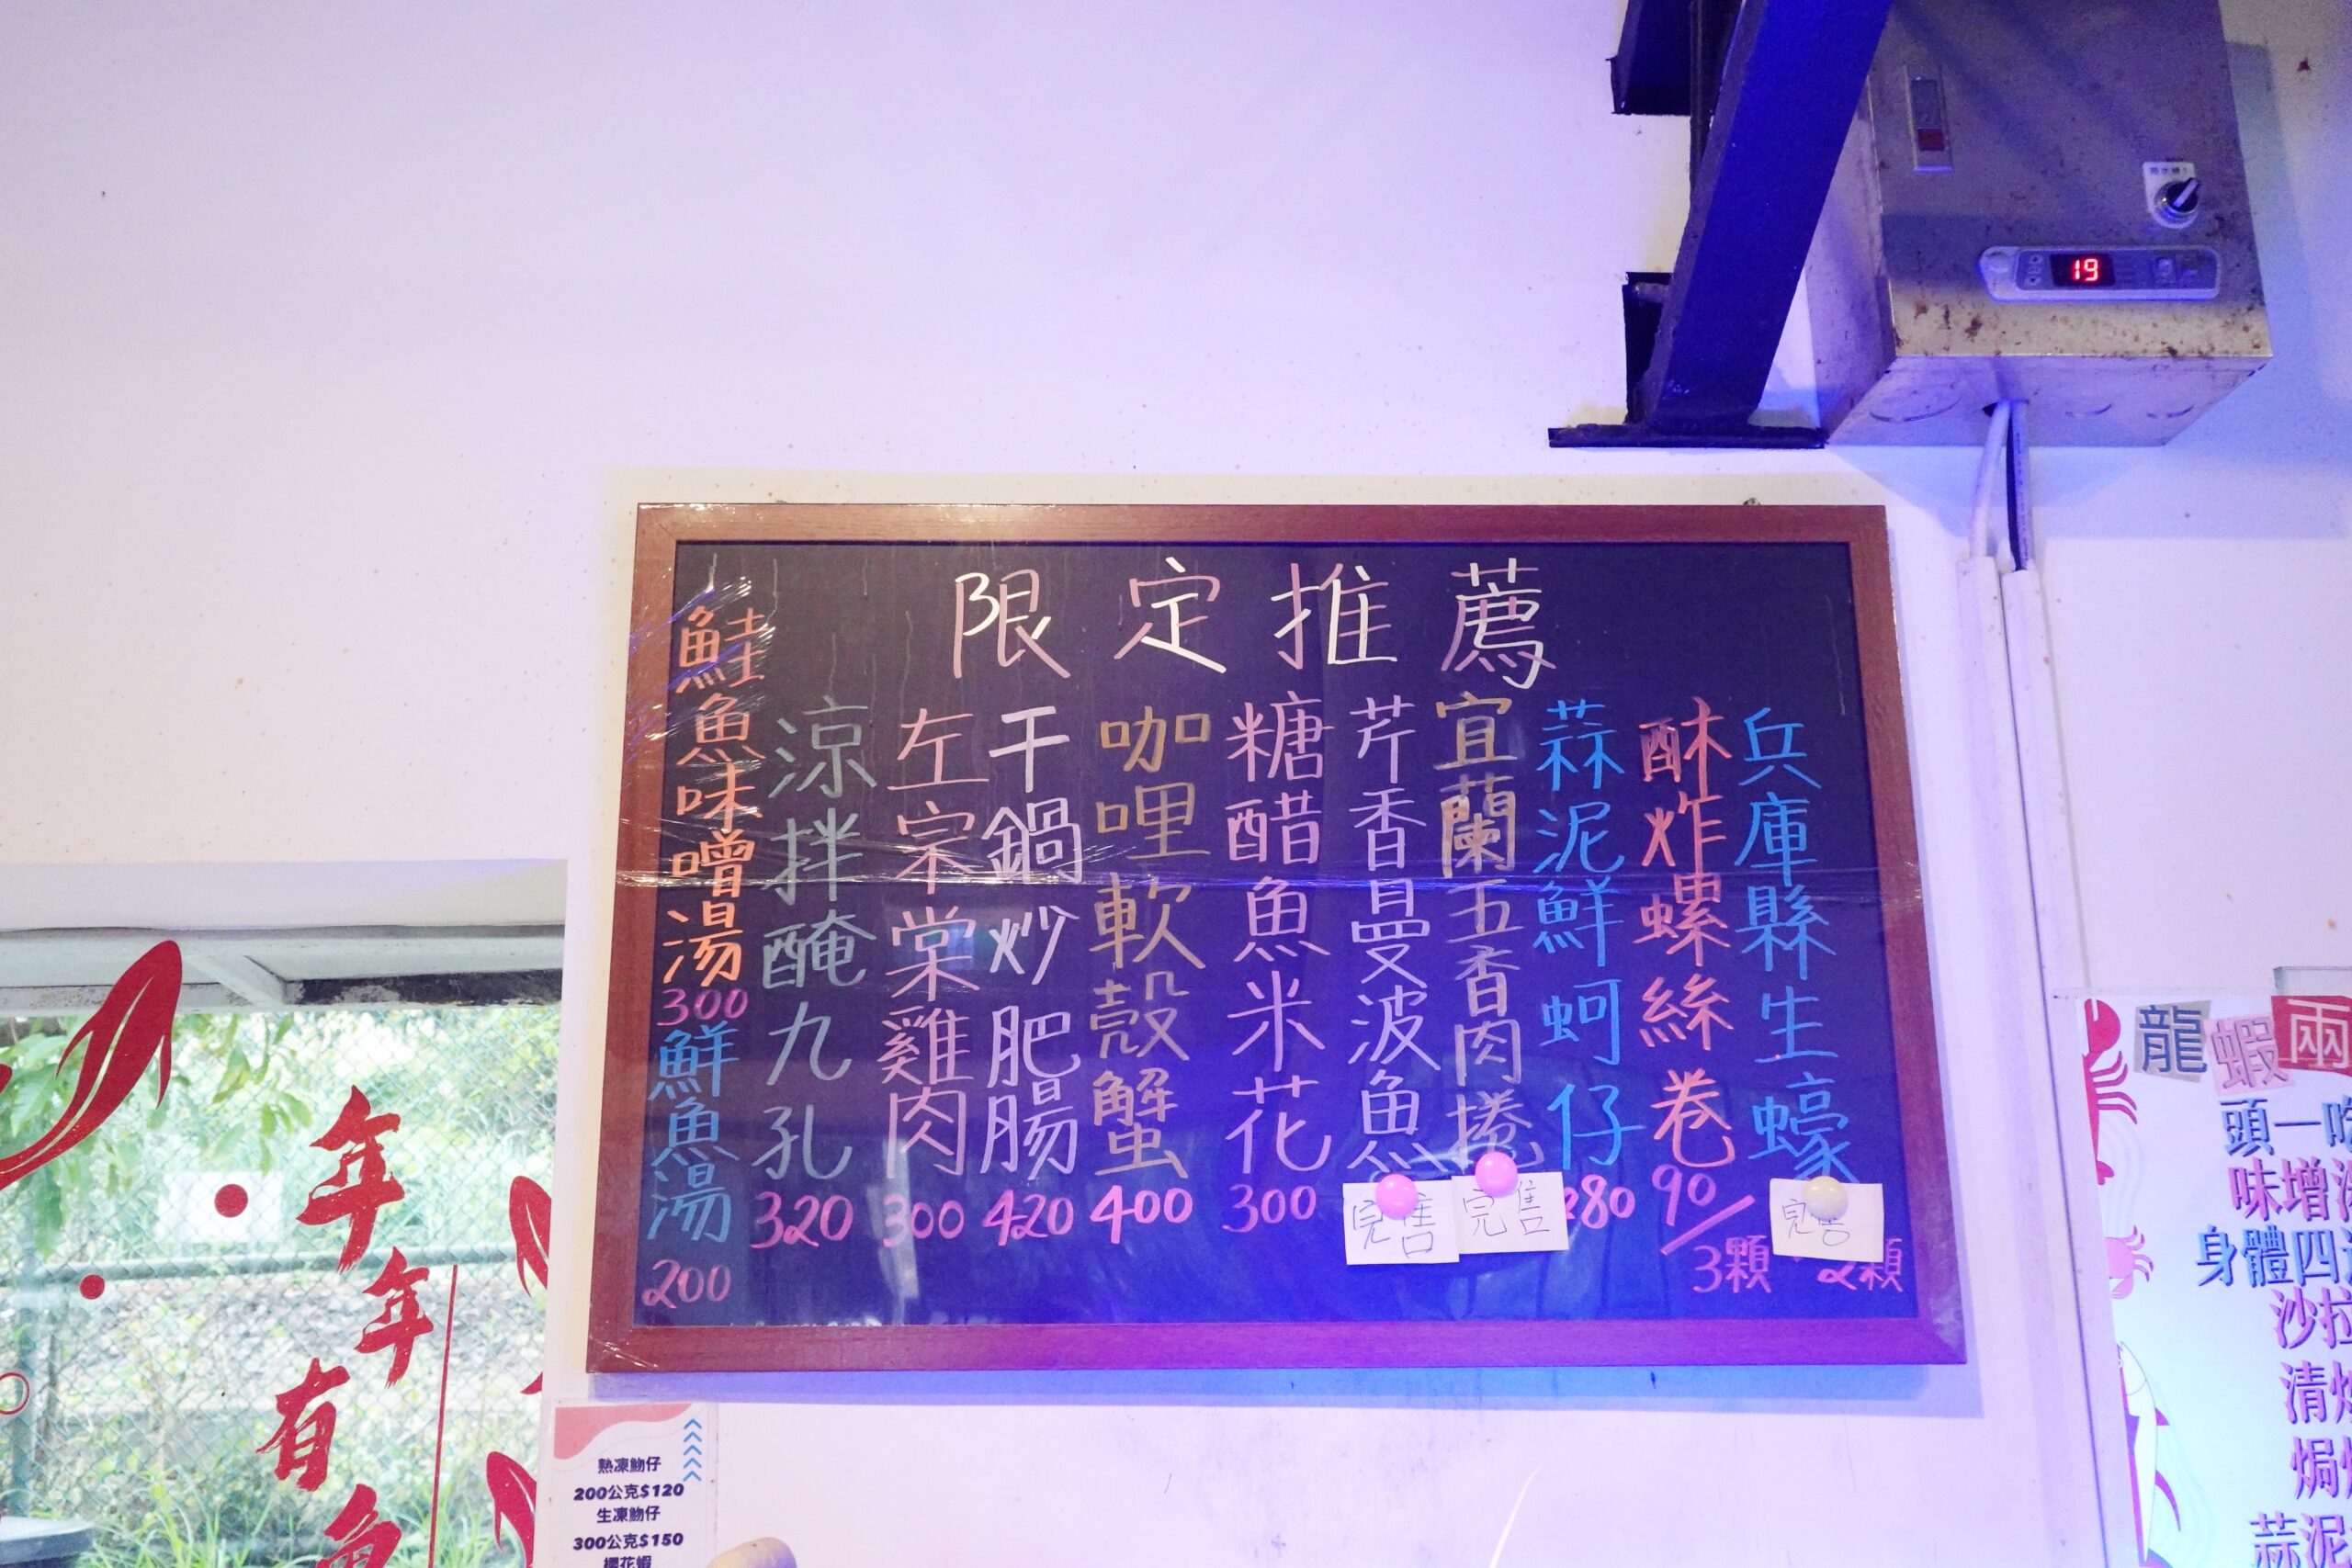 限定推薦
兵庫縣生蠔
完售
2顆
酥炸螺絲卷
90/3顆
蒜泥鮮蚵仔
280
宜蘭五香肉捲
完售
芹香曼波魚
完售
糖醋魚米花
300
咖哩軟殼蟹
400
干鍋炒肥腸
420
左宗棠雞肉
300
涼拌醃九孔
320
鮭魚味噌湯
300
鮮魚湯
200
19
年年有魚
熟凍魩仔
200公克$120
生凍魩仔
300公克$150
櫻花蝦
龍蝦兩
頭一
味增
身體四
沙拉
清
焗
蒜泥